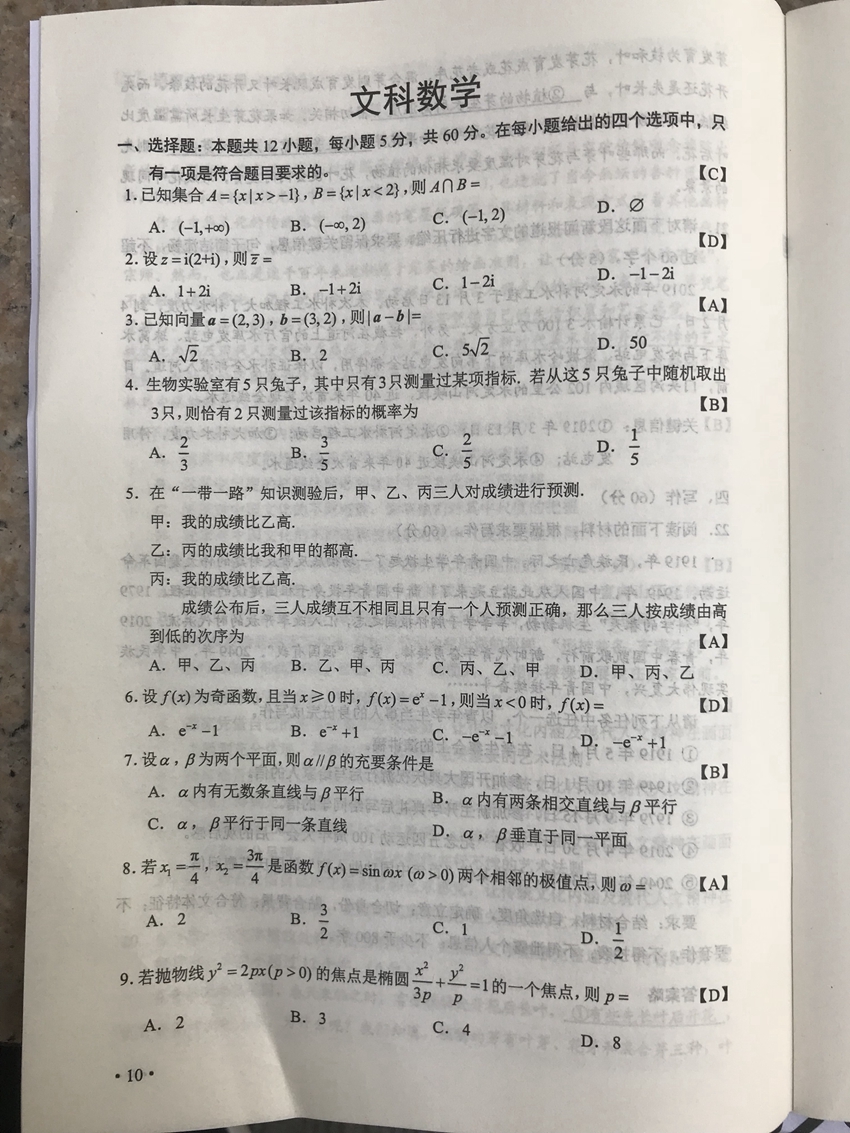 文科数学
一、选择题：本题共 12 小题，每小题 5 分，共 60 分。在每小题给出的四个选项中，只
有一项是符合题目要求的。
1. 已知集合 A={x|x>-1}，B={x|x<2}，则 A∩B= 【C】
A. (-1,+∞) B. (-∞,2) C. (-1,2) D. ∅
2. 设 z=i(2+i)，则 z̅= 【D】
A. 1+2i B. -1+2i C. 1-2i D. -1-2i
3. 已知向量 a=(2,3)，b=(3,2)，则|a-b|= 【A】
A. √2 B. 2 C. 5√2 D. 50
4. 生物实验室有 5 只兔子，其中只有 3 只测量过某项指标. 若从这 5 只兔子中随机取出
3 只，则恰有 2 只测量过该指标的概率为 【B】
A. 2/3 B. 3/5 C. 2/5 D. 1/5
5. 在“一带一路”知识测验后，甲、乙、丙三人对成绩进行预测.
甲：我的成绩比乙高.
乙：丙的成绩比我和甲的都高.
丙：我的成绩比乙高.
成绩公布后，三人成绩互不相同且只有一个人预测正确，那么三人按成绩由高
到低的次序为 【A】
A. 甲、乙、丙 B. 乙、甲、丙 C. 丙、乙、甲 D. 甲、丙、乙
6. 设 f(x) 为奇函数，且当 x≥0 时，f(x)=eˣ-1，则当 x<0 时，f(x)= 【D】
A. e⁻ˣ-1 B. e⁻ˣ+1 C. -e⁻ˣ-1 D. -e⁻ˣ+1
7. 设 α，β 为两个平面，则 α//β 的充要条件是 【B】
A. α 内有无数条直线与 β 平行 B. α 内有两条相交直线与 β 平行
C. α，β 平行于同一条直线 D. α，β 垂直于同一平面
8. 若 x₁=π/4，x₂=3π/4 是函数 f(x)=sin ωx (ω>0) 两个相邻的极值点，则 ω= 【A】
A. 2 B. 3/2 C. 1 D. 1/2
9. 若抛物线 y²=2px(p>0) 的焦点是椭圆 x²/3p+y²/p=1 的一个焦点，则 p= 【D】
A. 2 B. 3 C. 4 D. 8
·10·